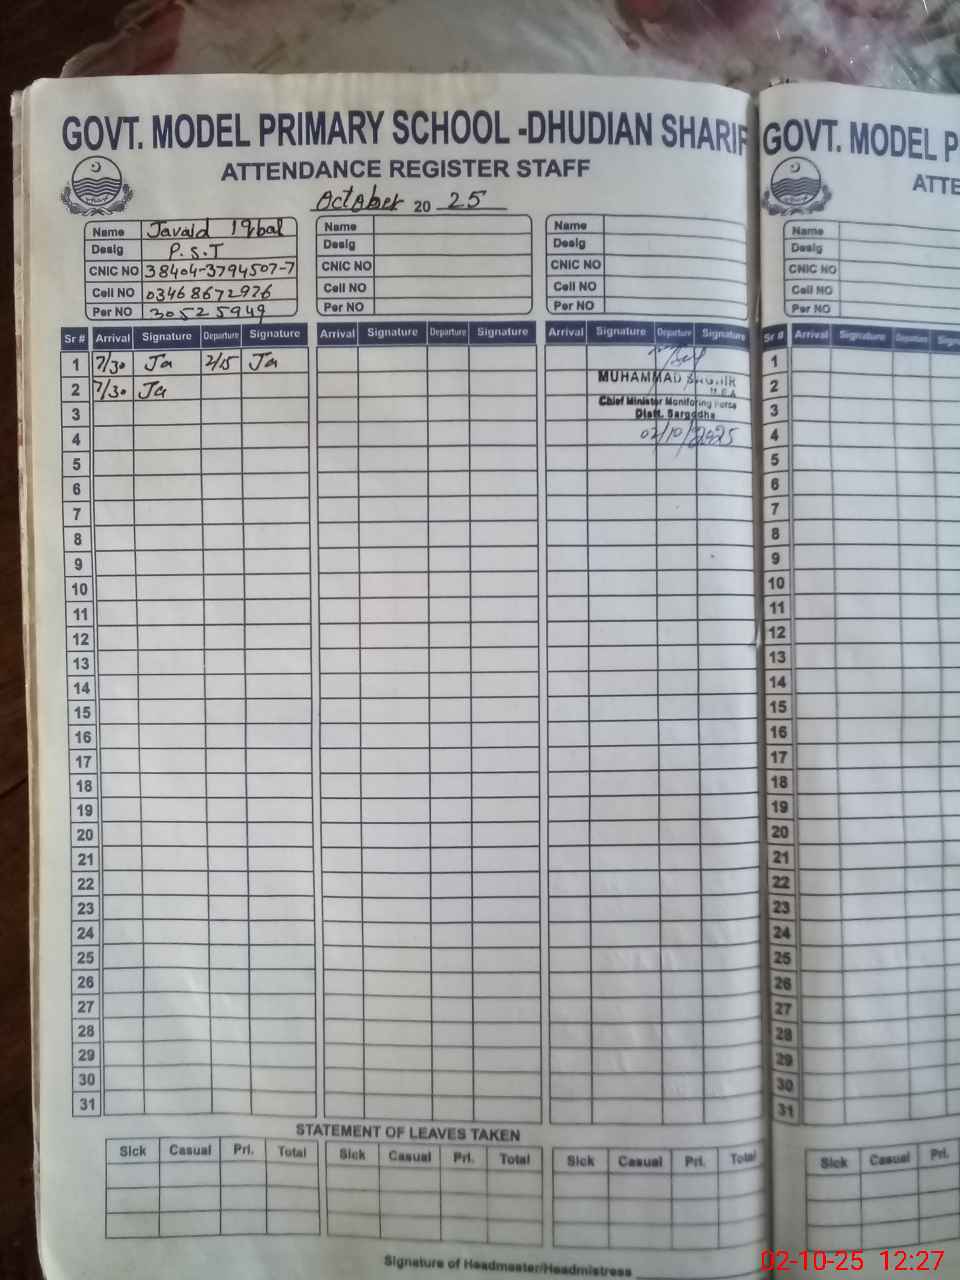 GOVT. MODEL PRIMARY SCHOOL -DHUDIAN SHARIF
ATTENDANCE REGISTER STAFF
October 20 25
Name Javaid Iqbal
Desig P.S.T
CNIC NO 38404-3794507-7
Cell NO 03468672976
Per NO 30525949
Name
Desig
CNIC NO
Cell NO
Per NO
Name
Desig
CNIC NO
Cell NO
Per NO
Sr # Arrival Signature Departure Signature Arrival Signature Departure Signature Arrival Signature Departure Signature
1 7/30 Ja 2/15 Ja
2 7/30 Ja
MUHAMMAD
M.E.A
Chief Minister Monitoring Force
Distt. Sargodha
02/10/2025
3
4
5
6
7
8
9
10
11
12
13
14
15
16
17
18
19
20
21
22
23
24
25
26
27
28
29
30
31
STATEMENT OF LEAVES TAKEN
Sick Casual Pri. Total Sick Casual Pri. Total Sick Casual Pri. Total
Signature of Headmaster/Headmistress
GOVT. MODEL P
ATTE
Name
Desig
CNIC NO
Cell NO
Per NO
Sr # Arrival Signature Departure Sign
1
2
3
4
5
6
7
8
9
10
11
12
13
14
15
16
17
18
19
20
21
22
23
24
25
26
27
28
29
30
31
Sick Casual Pri.
02-10-25 12:27